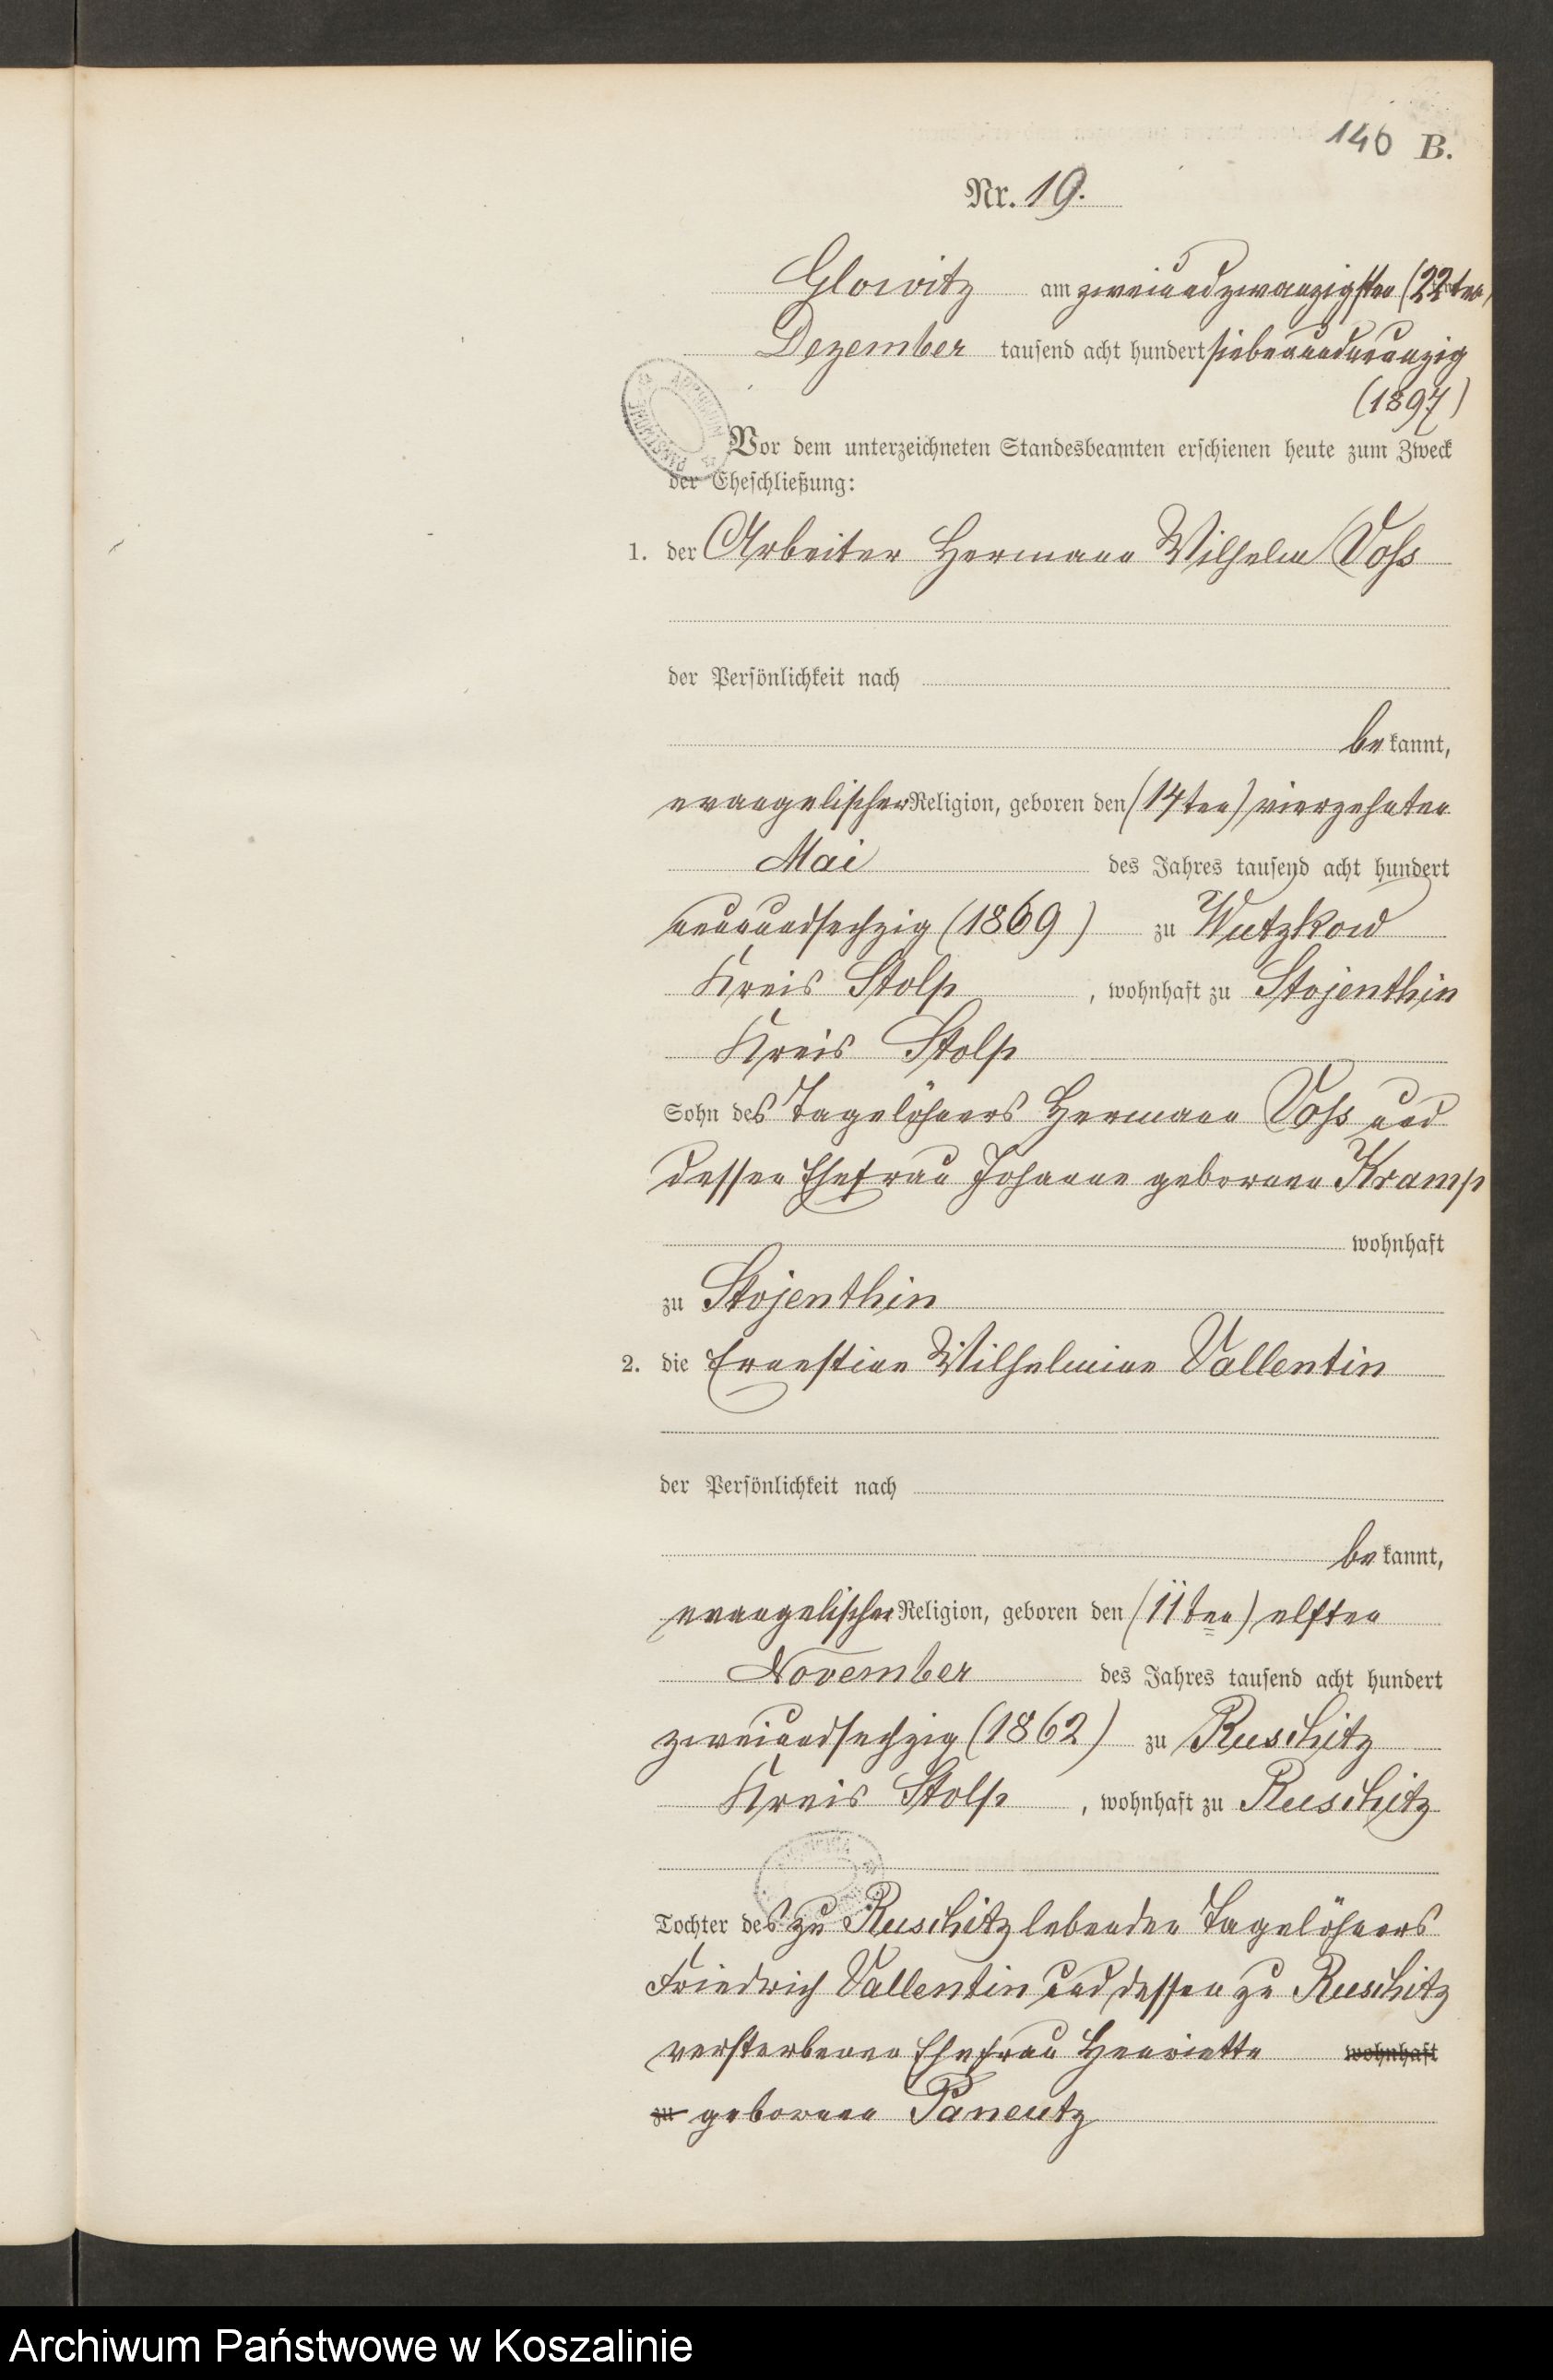 146 B.
Nr. 19.
Glowitz am zweiundzwanzigsten (22ten)
Dezember tausend acht hundert siebenundneunzig
(1897)
Vor dem unterzeichneten Standesbeamten erschienen heute zum Zweck
der Eheschließung:
1. der Arbeiter Hermann Wilhelm Voß
der Persönlichkeit nach
be kannt,
evangelischer Religion, geboren den (14ten) vierzehnten
Mai des Jahres tausend acht hundert
neunundsechzig (1869) zu Wutzkow
Kreis Stolp, wohnhaft zu Stojenthin
Kreis Stolp
Sohn des Tagelöhners Hermann Voß und
dessen Ehefrau Johanne geborenen Kramp
wohnhaft
zu Stojenthin
2. die Ernestine Wilhelmine Vallentin
der Persönlichkeit nach
be kannt,
evangelischer Religion, geboren den (11ten) elften
November des Jahres tausend acht hundert
zweiundsechzig (1862) zu Ruschitz
Kreis Stolp, wohnhaft zu Ruschitz
Tochter des zu Ruschitz lebenden Tagelöhners
Friedrich Vallentin und dessen zu Ruschitz
verstorbenen Ehefrau Henriette wohnhaft
zu geborenen Paneutz
Archiwum Państwowe w Koszalinie